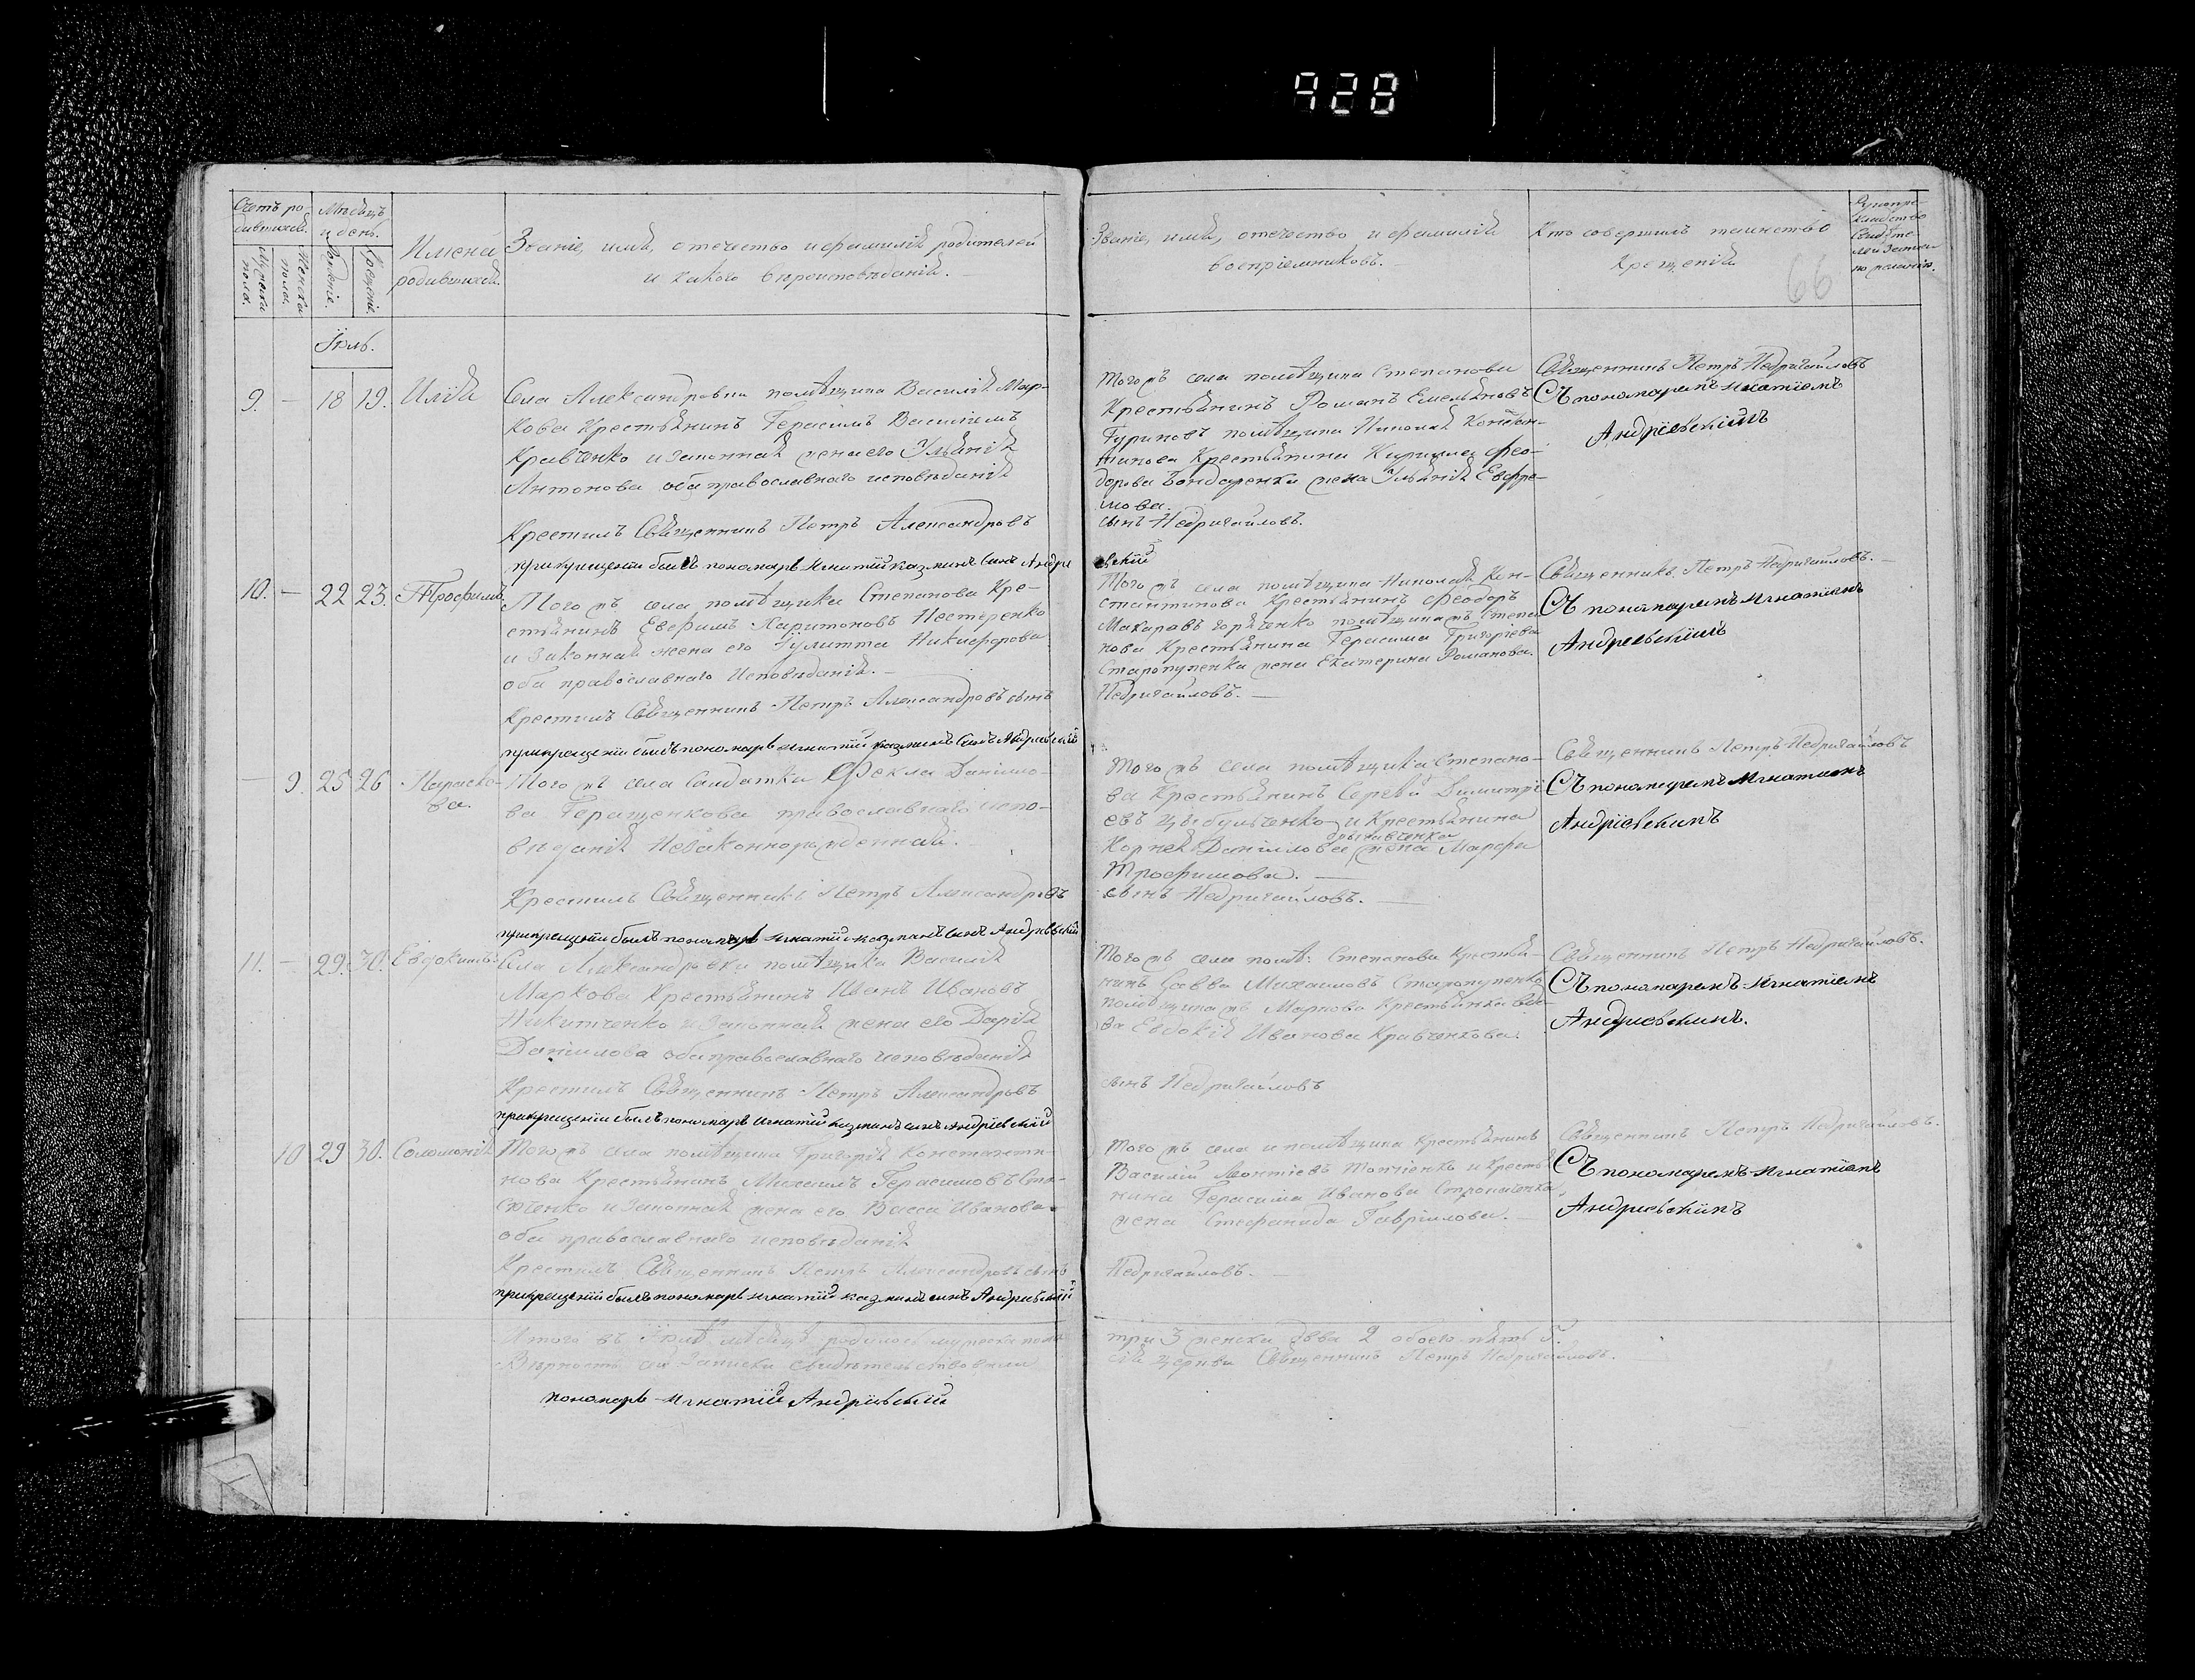 928
Счетъ ро-
дившихся.
Мѣсяцъ
и день.
Имена
родившихся.
Званіе, имя, отечество и фамилія родителей
и какого вѣроисповѣданія.
Мужеска
пола.
Женска
пола.
Рожденія.
Крещенія.
Званіе, имя, отечество и фамилія
воспріемниковъ.
Кто совершилъ таинство
крещенія
66
Іюль.
9. — 18 19. Илія
Села Александровки помѣщика Василія Мар-
кова Крестьянинъ Герасимъ Васильевъ
Кравченко и законная жена его Ульянія
Антонова оба православнаго исповѣданія
Крестилъ Священникъ Петръ Александровъ
при крещеніи былъ пономарь Игнатій Казминъ синъ Андрі
Тогожъ села помѣщика Степанова
Крестьянинъ Романъ Емельяновъ
Гуриновъ помѣщика Николая Констан-
тинова Крестьянина Кирилла Фео-
дорова Бондаренка жена Ульянія Евфре-
мова.
сынъ Недригайловъ.
евскій
Священникъ Петръ Недригайловъ
Съ пономаремъ Игнатіемъ
Андріевскимъ
10. — 22 23. Трофимъ
Тогожъ села помѣщика Степанова Кре-
стьянинъ Евфимъ Харитоновъ Нестеренко
и законная жена его Іулитта Никифорова
оба православнаго исповѣданія. —
Крестилъ Священникъ Петръ Александровъ сынъ
при крещеніи былъ пономарь Игнатій Казминъ синъ Андріевскій
Тогожъ села помѣщика Николая Кон-
стантинова Крестьянинъ Феодоръ
Макаровъ Горяченко помѣщикажъ Степа
нова Крестьянина Герасима Григорьева
Старопупенка жена Екатерина Романова.
Недригайловъ. —
Священникъ Петръ Недригайловъ. —
Съ пономаремъ Игнатіемъ
Андреевскимъ
— 9. 25 26 Параске-
ва.
Тогожъ села Салдатка Фекла Данило-
ва Геращенкова православнаго испо-
вѣданія Незаконнорожденная.
Крестилъ Священникъ Петръ Александровъ
при крещеніи былъ пономарь Игнатій Казминъ синъ Андріевскій
Тогожъ села помѣщика Степано-
ва Крестьянинъ Сергѣй Димитрі
евъ Цыбульченко и Крестьянина
Корнея Данилова жена Марфа
Трофимова. —
сынъ Недригайловъ. —
Священникъ Петръ Недригайловъ
Съ пономаремъ Игнатіемъ
Андріевскимъ
11. — 29. 30. Евдокимъ.
Села Александровки помѣщика Василія
Маркова Крестьянинъ Иванъ Ивановъ
Никитченко и законная жена его Дарія
Данилова оба православнаго исповѣданія
Крестилъ Священникъ Петръ Александровъ
при крещеніи былъ пономарь Игнатій Казминъ синъ Андріевскій
Тогожъ села помѣ: Степанова Крестья-
нинъ Савва Михаиловъ Старопупенко
помѣщикажъ Маркова Крестьянка вдо-
ва Евдокія Иванова Кравченкова.
сынъ Недригайловъ
Священникъ Петръ Недригайловъ.
Съ пономаремъ Игнатіемъ
Андріевскимъ.
10 29 30. Соломонія
Тогожъ села помѣщика Григорія Константи-
нова Крестьянинъ Михаилъ Герасимовъ Ста-
сюченко и законная жена его Васса Иванова
оба православнаго исповѣданія
Крестилъ Священникъ Петръ Александровъ сынъ
при крещеніи былъ пономарь Игнатій Казминъ синъ Андріевскій
Тогожъ села и помѣщика крестьянинъ
Василій Леонтіевъ Топчіенко и крестья
нина Герасима Иванова
жена Стефанида Гавріилова. —
Недригайловъ. —
Священникъ Петръ Недригайловъ.
Съ пономаремъ Игнатіемъ
Андріевскимъ
Итого въ Іюлѣ мѣсяцѣ родилось мужеска пола
три 3 женска два 2 обоего пять 5.
Вѣрность сей записки свидѣтельствовали
сея церкви Священникъ Петръ Недригайловъ.
пономарь Игнатій Андріевскій